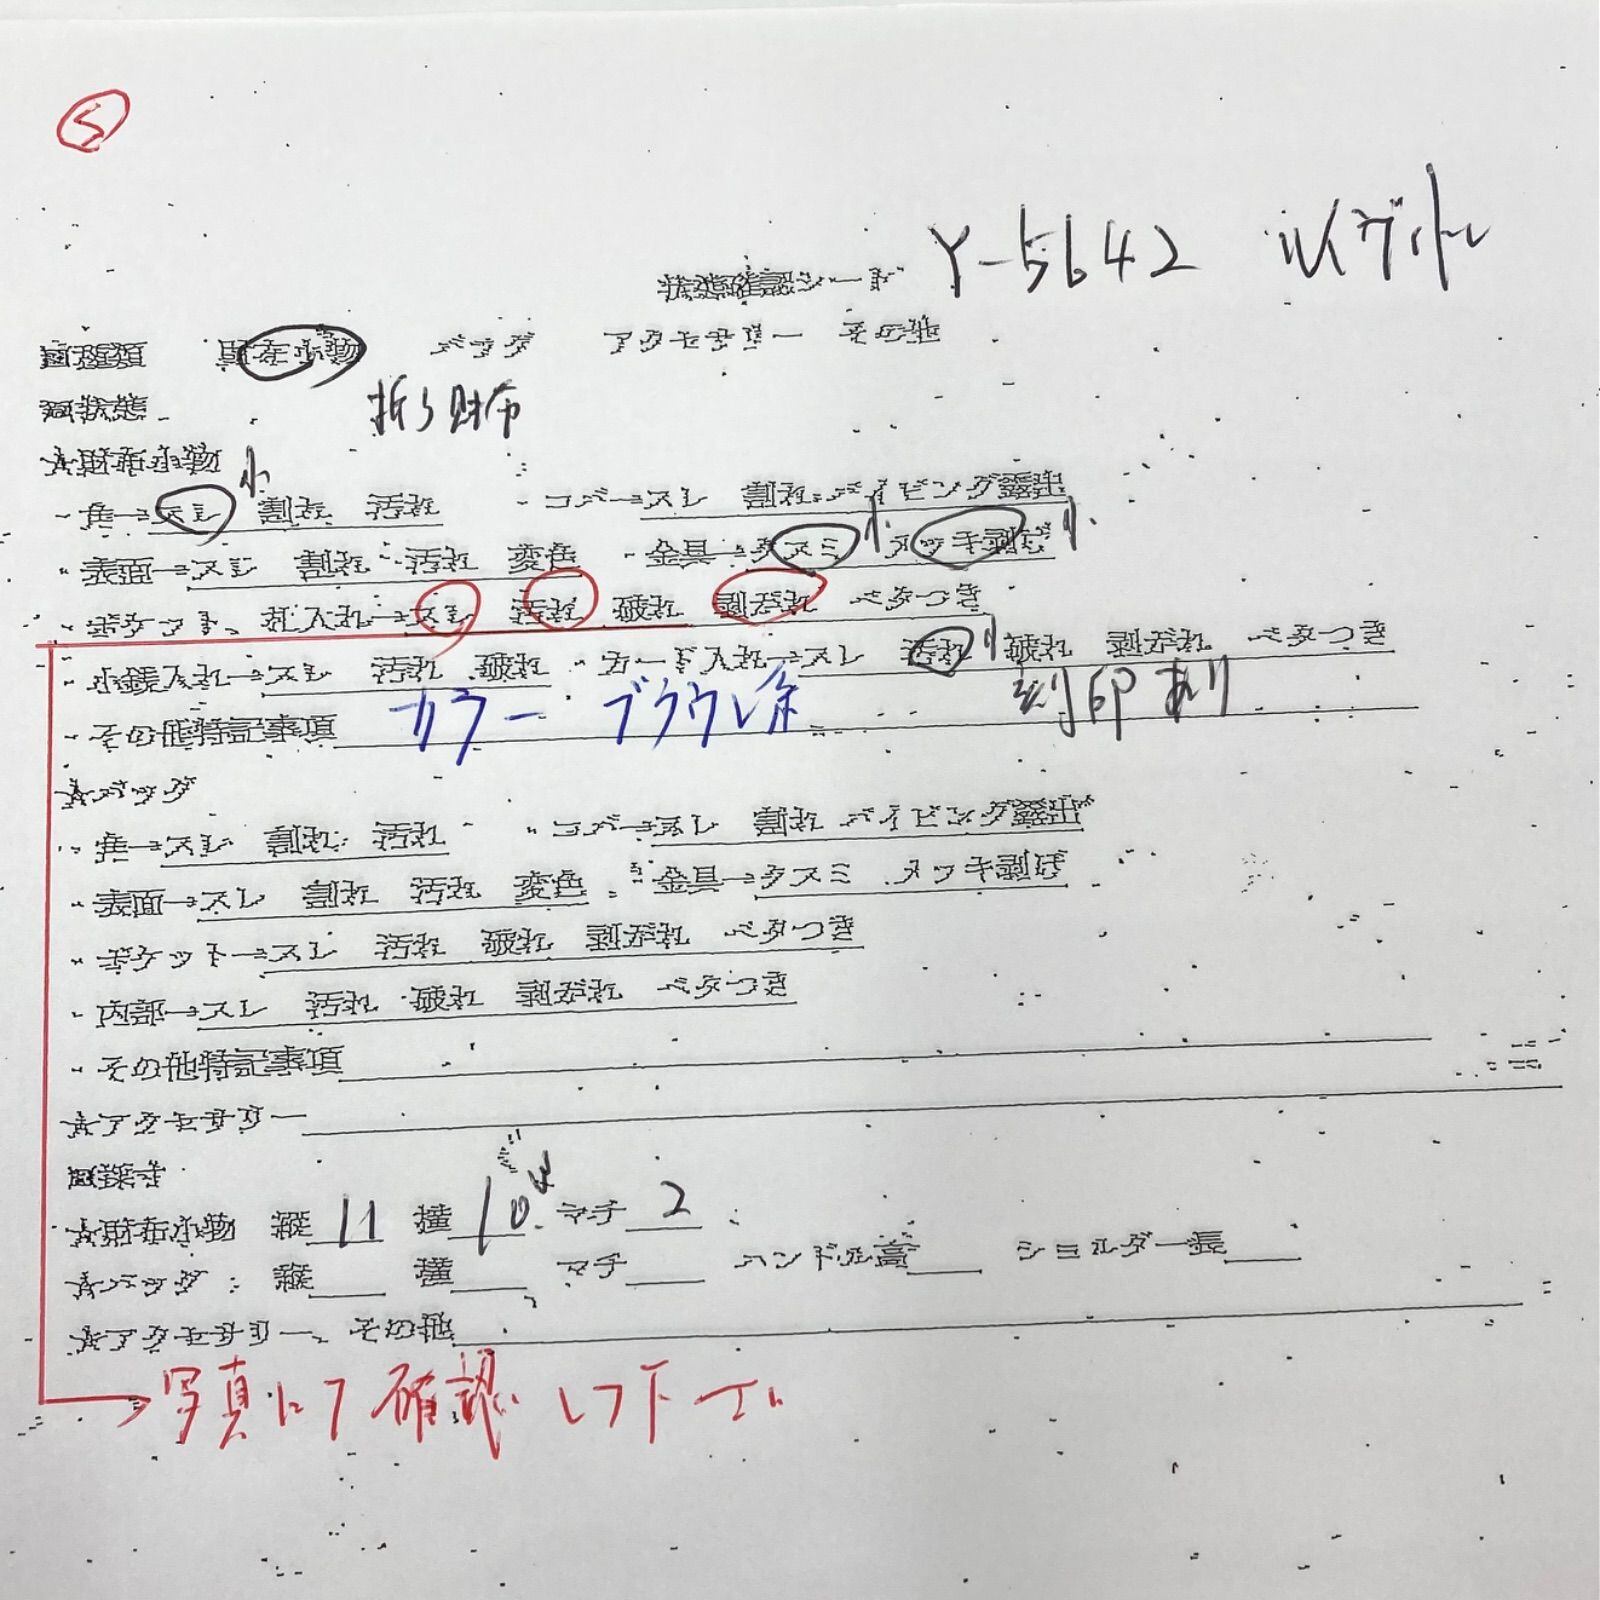 5
状態確認シート Y-5642 ルイヴィトン
種類 財布小物 バッグ アクセサリー その他
状態 折り財布
☆財布小物 小
・角→スレ 割れ 汚れ ・コバ→スレ 割れ パイピング露出
・表面→スレ 割れ 汚れ 変色 ・金具→クスミ 小 メッキ剥げ 小
・ポケット、札入れ→スレ 汚れ 破れ 剥がれ ベタつき
・小銭入れ→スレ 汚れ 破れ ・カード入れ→スレ 汚れ 破れ 剥がれ ベタつき
・その他特記事項 カラー ブラウン系 刻印あり
☆バッグ
・角→スレ 割れ 汚れ ・コバ→スレ 割れ パイピング露出
・表面→スレ 割れ 汚れ 変色 ・金具→クスミ メッキ剥げ
・ポケット→スレ 汚れ 破れ 剥がれ ベタつき
・内部→スレ 汚れ 破れ 剥がれ ベタつき
・その他特記事項
☆アクセサリー
採寸
☆財布小物 縦 11 横 10 マチ 2
☆バッグ:縦 横 マチ ハンドル高 ショルダー長
☆アクセサリー、その他
写真にて確認して下さい